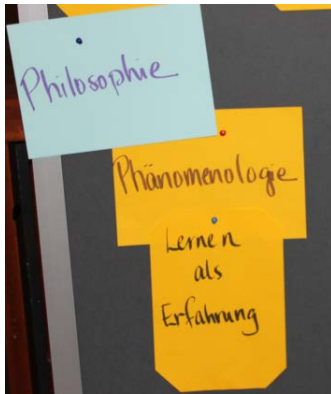 Philosophie
Phänomenologie
Lernen
als
Erfahrung